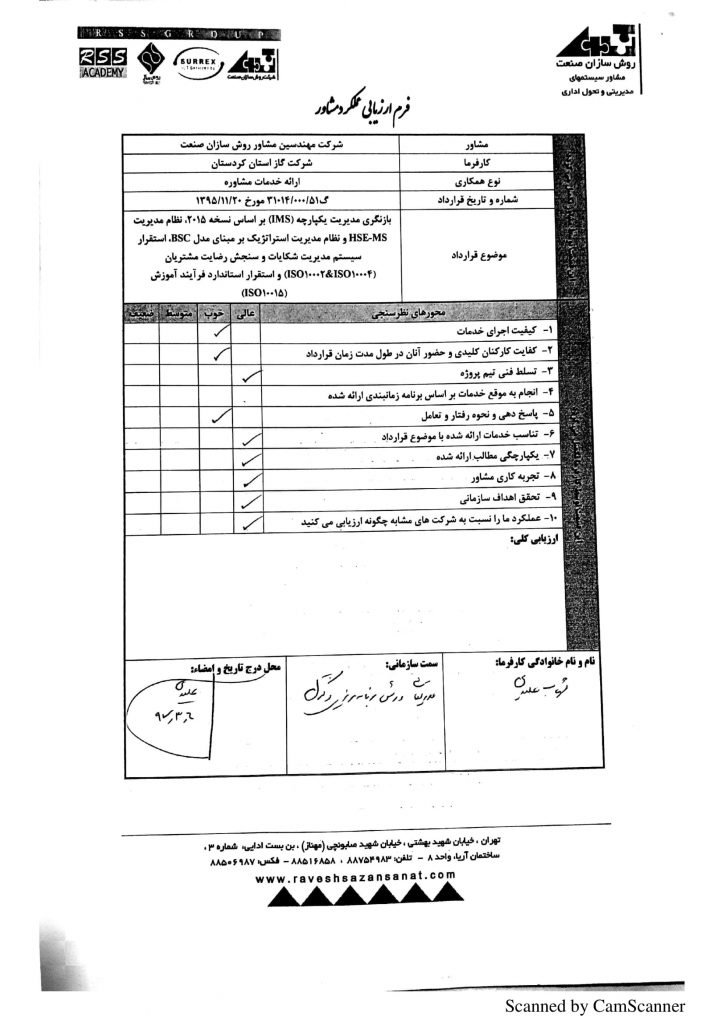 R S S G R O U P
RSS
ACADEMY
SURREX
شرکت روش سازان صنعت
روش سازان صنعت
مشاور سیستمهای
مدیریتی و تحول اداری
فرم ارزیابی عملکرد مشاور
مشاور
شرکت مهندسین مشاور روش سازان صنعت
کارفرما
شرکت گاز استان کردستان
نوع همکاری
ارائه خدمات مشاوره
شماره و تاریخ قرارداد
گ۳۱۰۱۴/۰۰۰/۵۱ مورخ ۱۳۹۵/۱۱/۲۰
موضوع قرارداد
بازنگری مدیریت یکپارچه (IMS) بر اساس نسخه ۲۰۱۵، نظام مدیریت
HSE-MS و نظام مدیریت استراتژیک بر مبنای مدل BSC، استقرار
سیستم مدیریت شکایات و سنجش رضایت مشتریان
(ISO۱۰۰۰۲&ISO۱۰۰۰۴) و استقرار استاندارد فرآیند آموزش
(ISO۱۰۰۱۵)
محورهای نظرسنجی
عالی
خوب
متوسط
ضعیف
۱- کیفیت اجرای خدمات
۲- کفایت کارکنان کلیدی و حضور آنان در طول مدت زمان قرارداد
۳- تسلط فنی تیم پروژه
۴- انجام به موقع خدمات بر اساس برنامه زمانبندی ارائه شده
۵- پاسخ دهی و نحوه رفتار و تعامل
۶- تناسب خدمات ارائه شده با موضوع قرارداد
۷- یکپارچگی مطالب ارائه شده
۸- تجربه کاری مشاور
۹- تحقق اهداف سازمانی
۱۰- عملکرد ما را نسبت به شرکت های مشابه چگونه ارزیابی می کنید
ارزیابی کلی:
نام و نام خانوادگی کارفرما:
سمت سازمانی:
محل درج تاریخ و امضاء:
تهران ، خیابان شهید بهشتی ، خیابان شهید صابونچی (مهناز) ، بن بست ادایی، شماره ۳ ،
ساختمان آریا، واحد ۸ – تلفن: ۸۸۷۵۴۹۸۳ ، ۸۸۵۱۶۸۵۸ – فکس: ۸۸۵۰۶۹۸۷
www.raveshsazansanat.com
Scanned by CamScanner